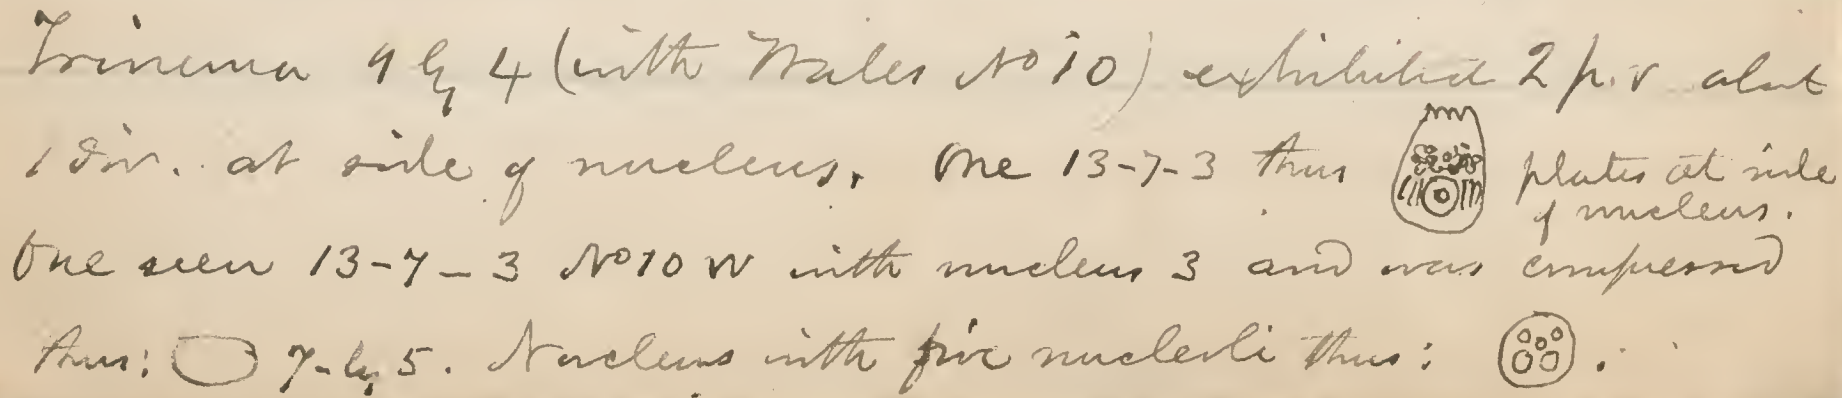 Trinema 9 by 4 (with Wales No 10) exhibited 2 p.v about
1 div. at side of nucleus. One 13-7-3 thus plates at side
of nucleus.
One seen 13-7-3 No 10 W with nucleus 3 and was compressed
thus: 7-by 5. Nucleus with five nucleoli thus: .